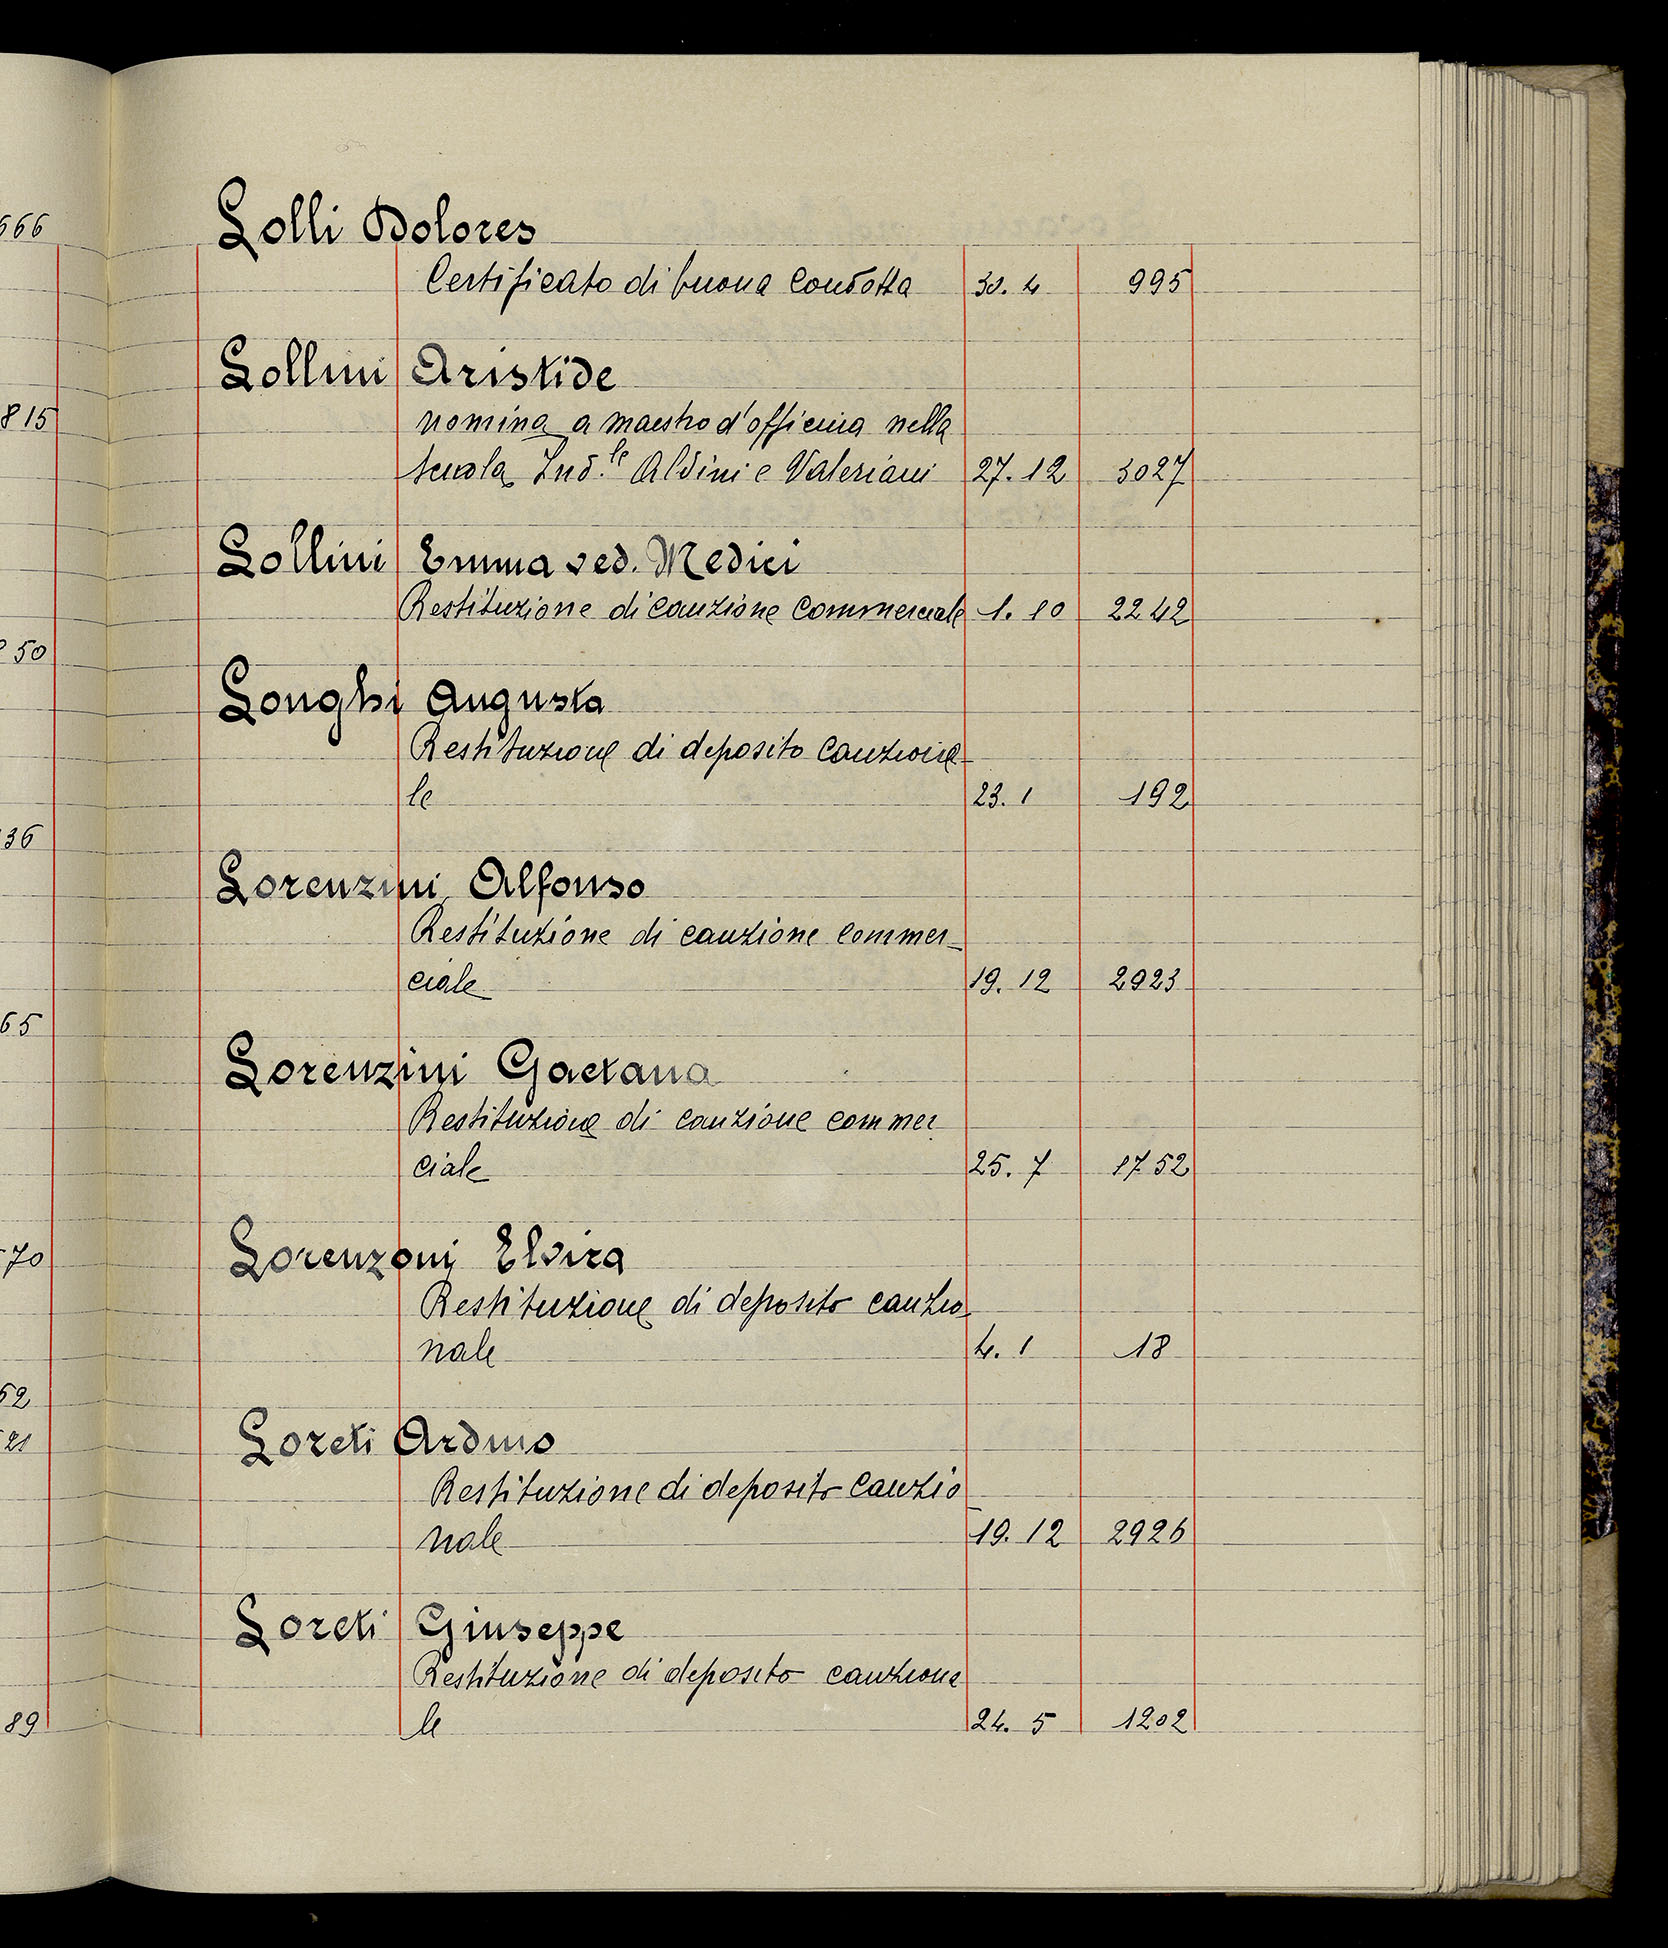 666
815
50
36
65
70
52
21
89
Lolli Dolores
Certificato di buona condotta 30. 4 995
Lollini Aristide
nomina a maestro d'officina nella
scuola Ind.le Aldini e Valeriani 27. 12 3027
Lollini Emma ved. Medici
Restituzione di cauzione commerciale 1. 10 2242
Longhi Augusta
Restituzione di deposito cauziona
le 23. 1 192
Lorenzini Alfonso
Restituzione di cauzione commer-
ciale 19. 12 2923
Lorenzini Gaetana
Restituzione di cauzione commer
ciale 25. 7 1752
Lorenzoni Elvira
Restituzione di deposito cauzio-
nale 4. 1 18
Loreti Arduino
Restituzione di deposito cauzio
nale 19. 12 2926
Loreti Giuseppe
Restituzione di deposito cauziona
le 24. 5 1202